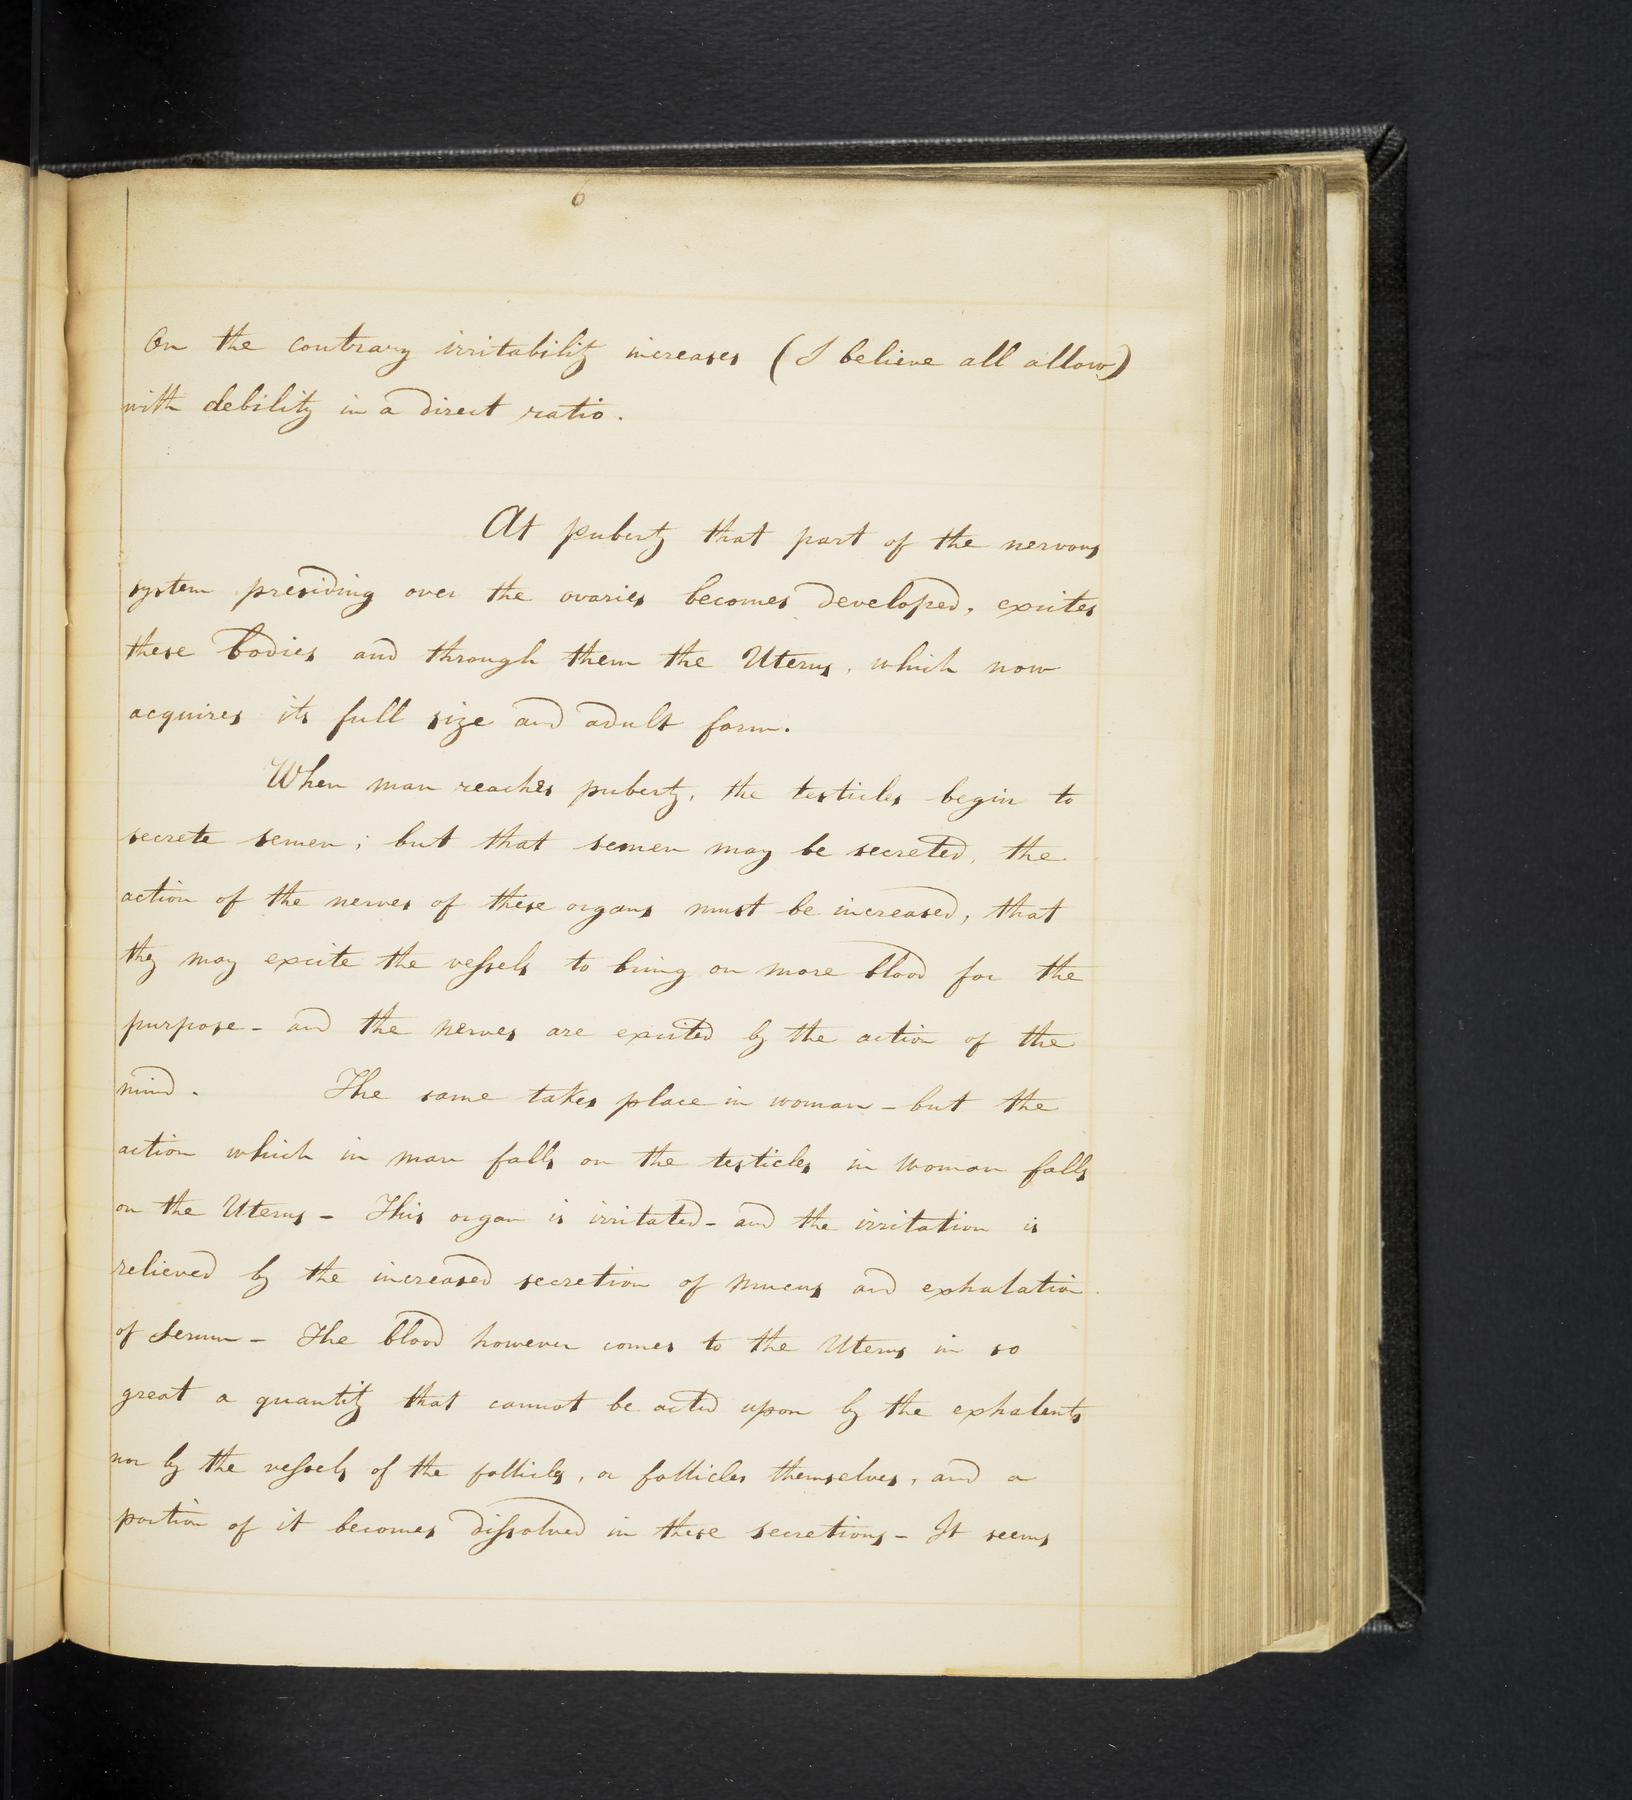 6
On the contrary irritability increases (I believe all allow)
with debility in a direct ratio.
At puberty that part of the nervous
system presiding over the ovaries becomes developed, excites
these bodies and through them the Uterus, which now
acquires its full size and adult form.
When man reaches puberty, the testicles begin to
secrete semen; but that semen may be secreted, the
action of the nerves of these organs must be increased, that
they may excite the vessels to bring on more blood for the
purpose - and the nerves are excited by the action of the
mind. The same takes place in woman - but the
action which in man falls on the testicles in woman falls
on the Uterus - This organ is irritated - and the irritation is
relieved by the increased secretion of mucus and exhalation
of Serum - The blood however comes to the Uterus in so
great a quantity that cannot be acted upon by the exhalents
nor by the vessels of the follicles, or follicles themselves, and a
portion of it becomes dissolved in these secretions - It seems